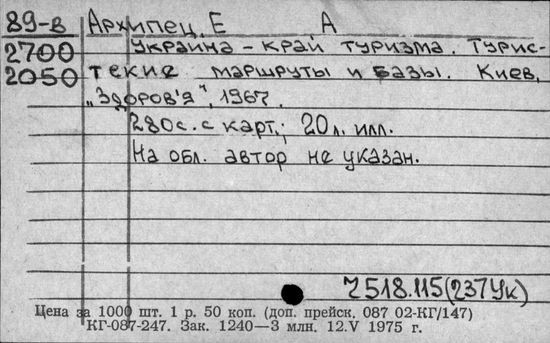 89-в Архипец, Е А
2700 Украина - край туризма. Турис-
2050 текие маршруты и базы. Киев,
„Здоров'я", 1967.
280с. с карт.; 20л. илл.
На обл. автор не указан.
7518.115(237Ук)
Цена за 1000 шт. 1 р. 50 коп. (доп. прейск. 087 02-КГ/147)
КГ-087-247. Зак. 1240—3 млн. 12.V 1975 г.